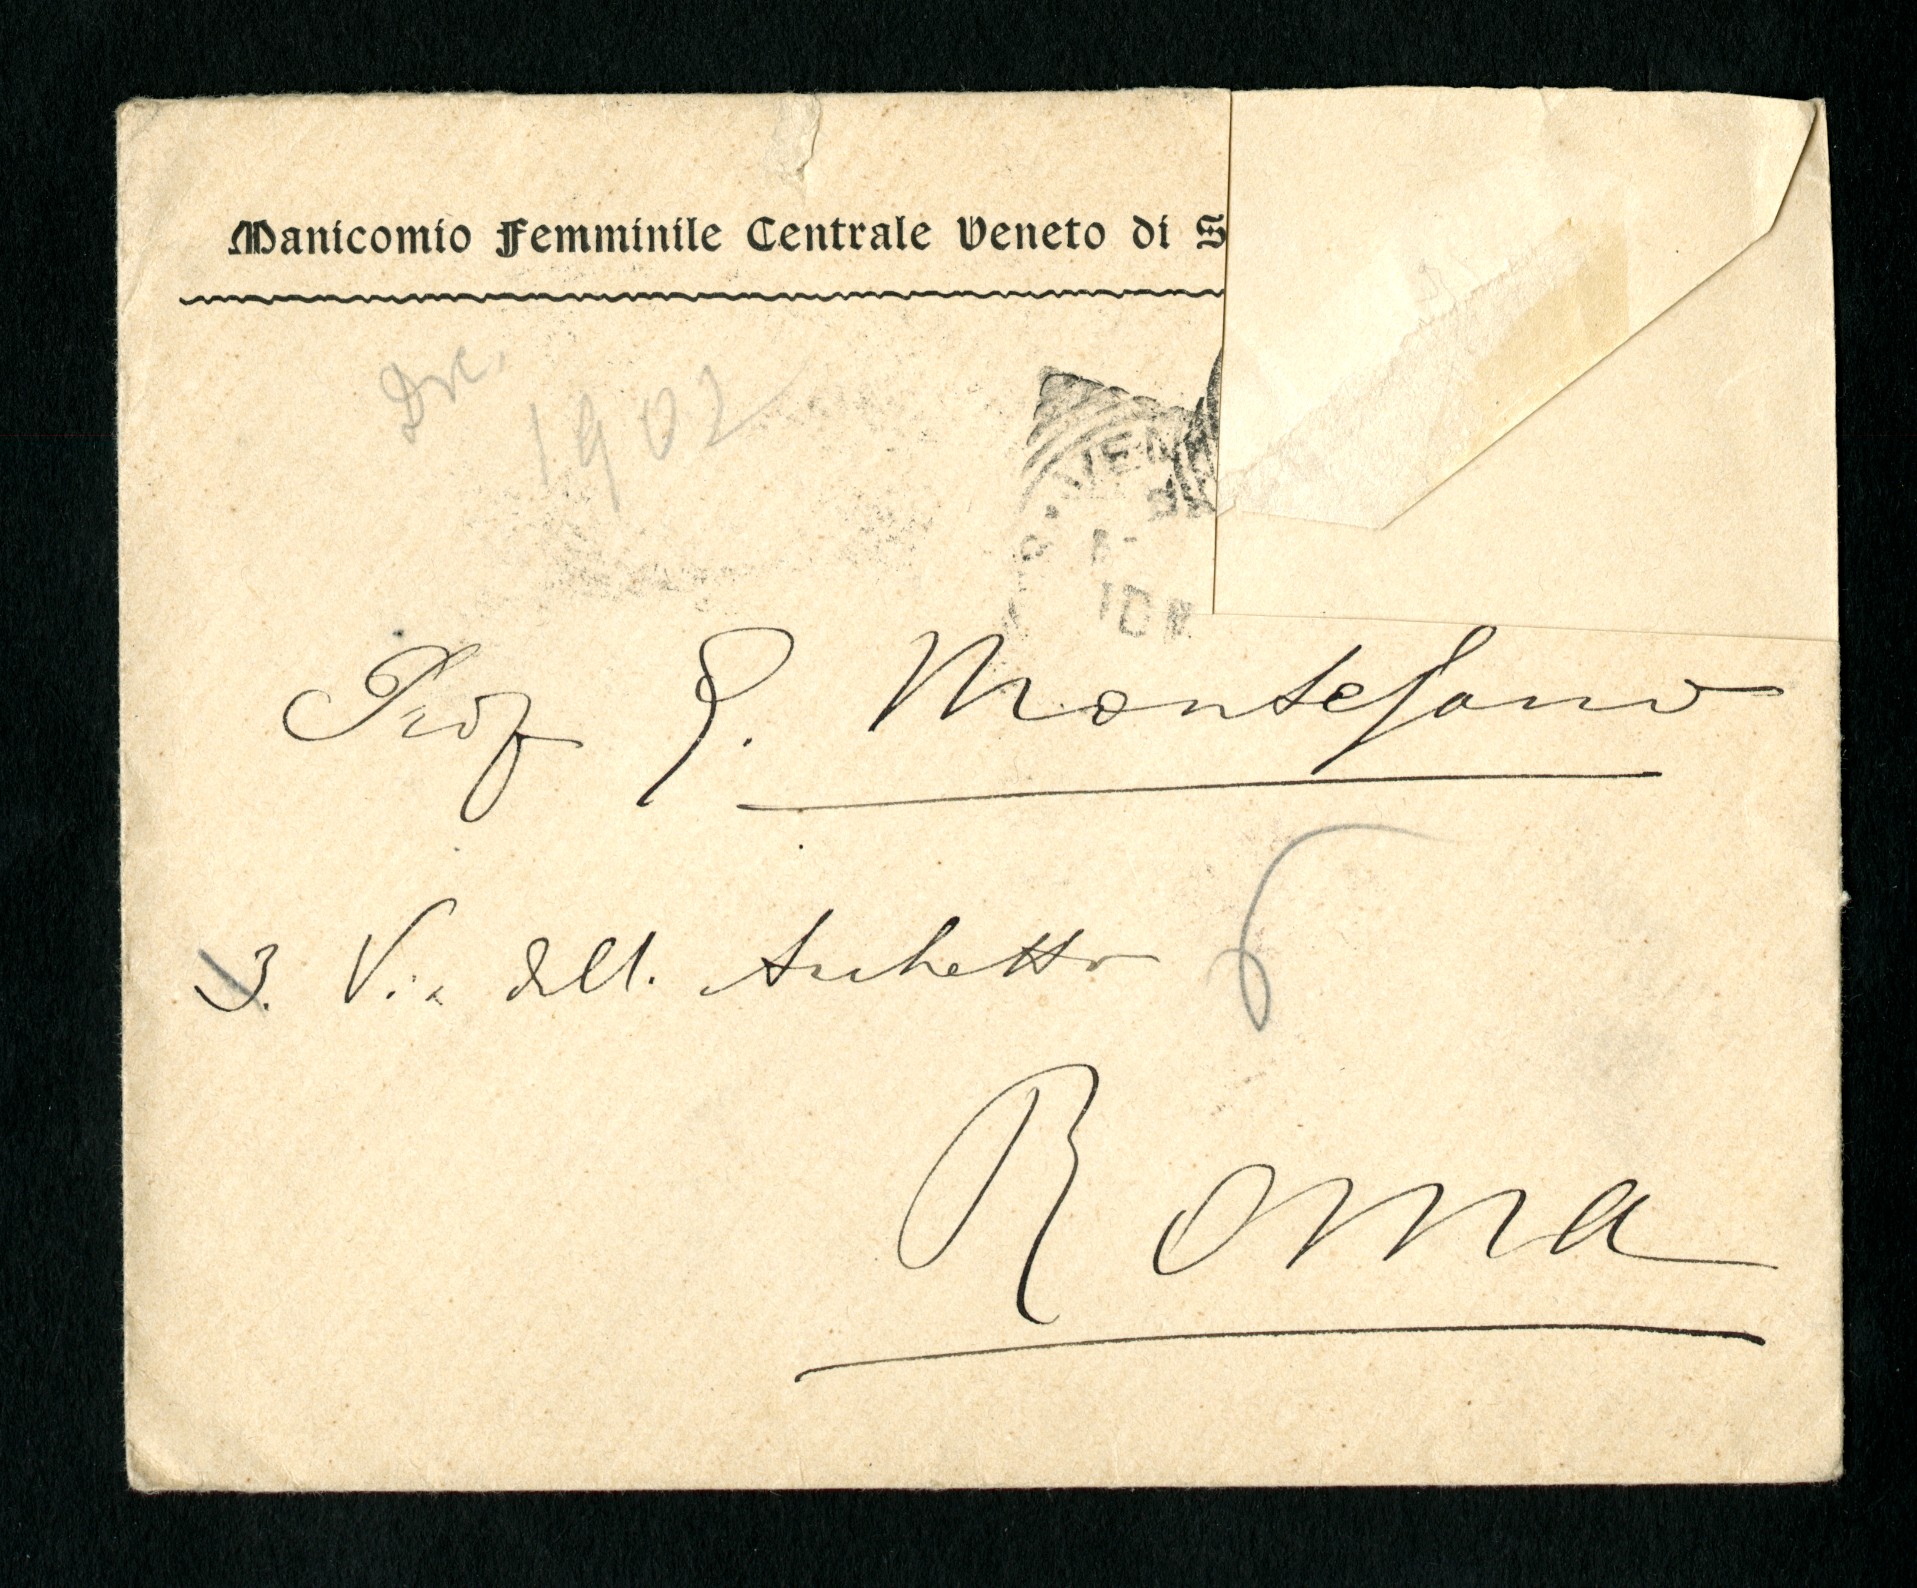 Manicomio Femminile Centrale Veneto di S
Dic. 1902
VEN
10
Prof G. Montesano
3. Via dell. Archetto
Roma